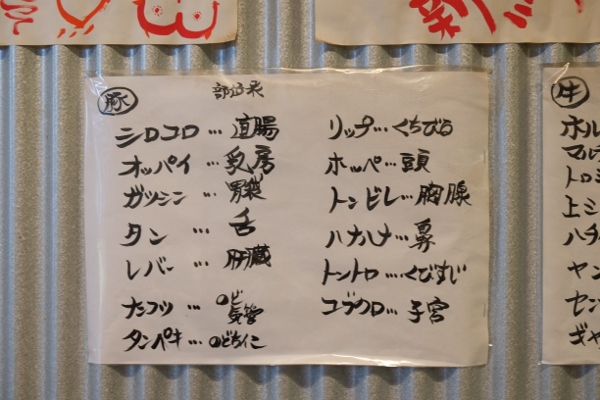 豚
部位表
シロコロ…直腸
オッパイ…乳房
ガツシン…胃袋
タン…舌
レバー…肝臓
ナンコツ…のど気管
タンペキ…のどちんこ
リップ…くちびる
ホッペ…頭
トンビレ…胸腺
ハナハナ…鼻
トントロ…くびすじ
コブクロ…子宮
牛
ホル
マル
トロ
上ミ
ハチ
ヤン
セン
ギャ